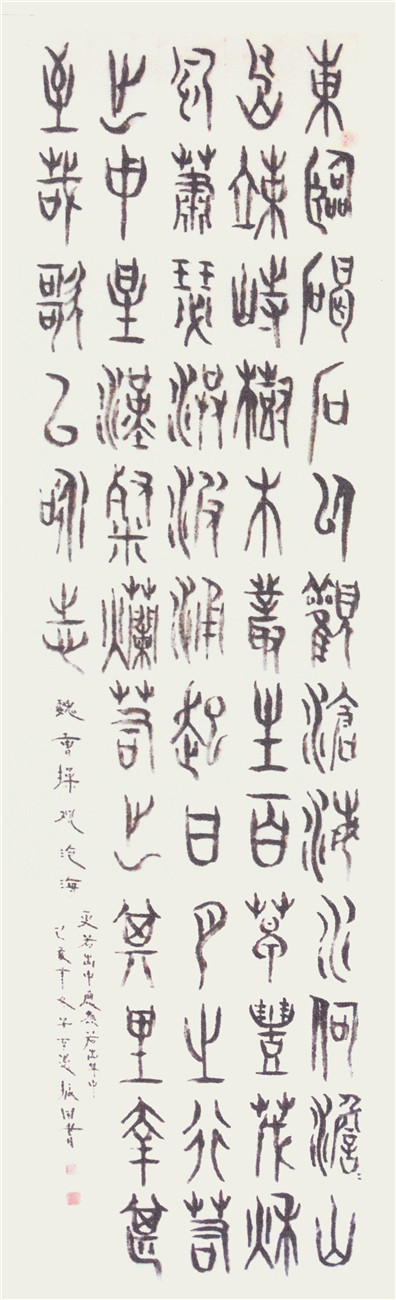 東臨碣石以觀滄海水何澹〻山
島竦峙樹木叢生百草豐茂秌
風蕭瑟洪波涌起日月之行若
出中星漢粲爛若出其里幸甚
至哉歌以詠志
魏曹操觀滄海
若出中應為若出其中
己亥年